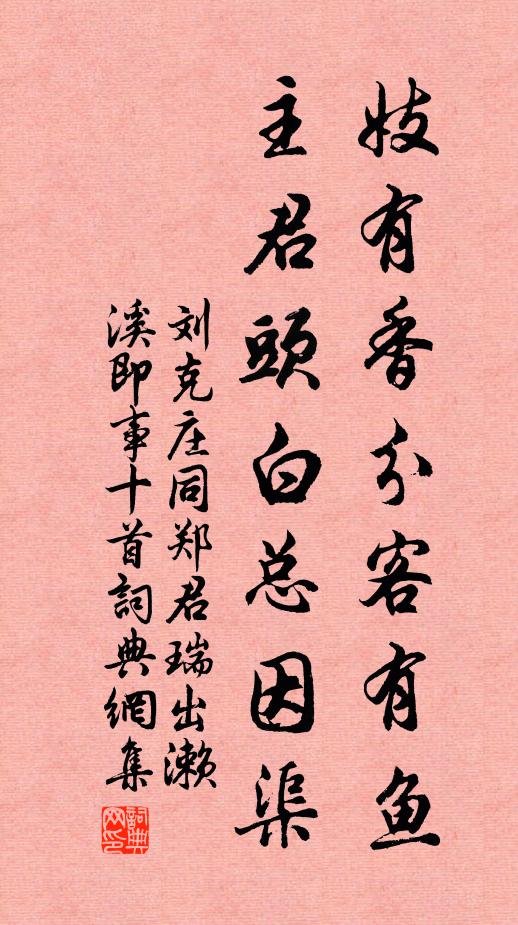 妓有香分客有鱼
主君頭白总因渠
刘克庄同郑君瑞出濑
溪即事十首詞典網集
詞典网印